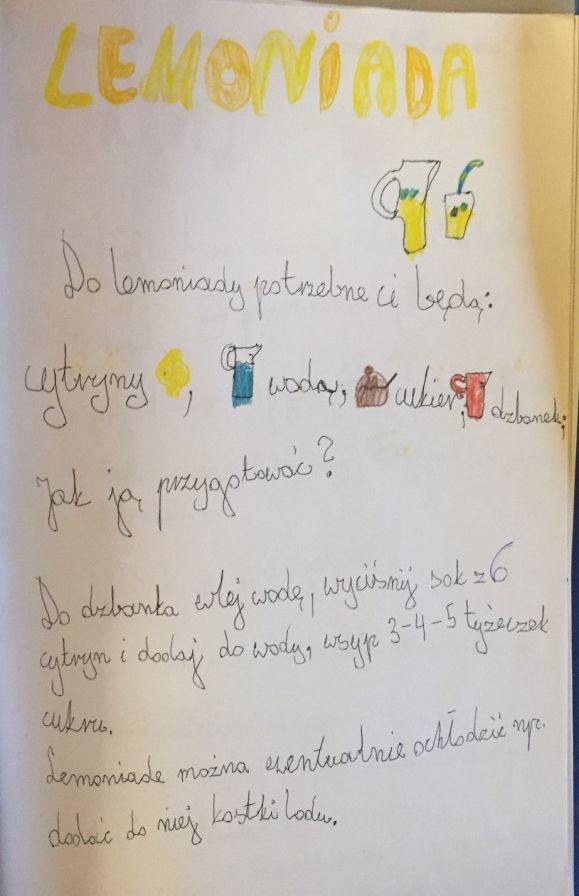 LEMONiADA
Do lemoniady potrzebne ci będą:
cytryny, woda, cukier, dzbanek;
Jak ją przygotować?
Do dzbanka wlej wodę, wyciśnij sok z 6
cytryn i dodaj do wody, wsyp 3-4-5 łyżeczek
cukru.
Lemoniade można ewentualnie ochłodzić np.
dodać do niej kostki lodu.